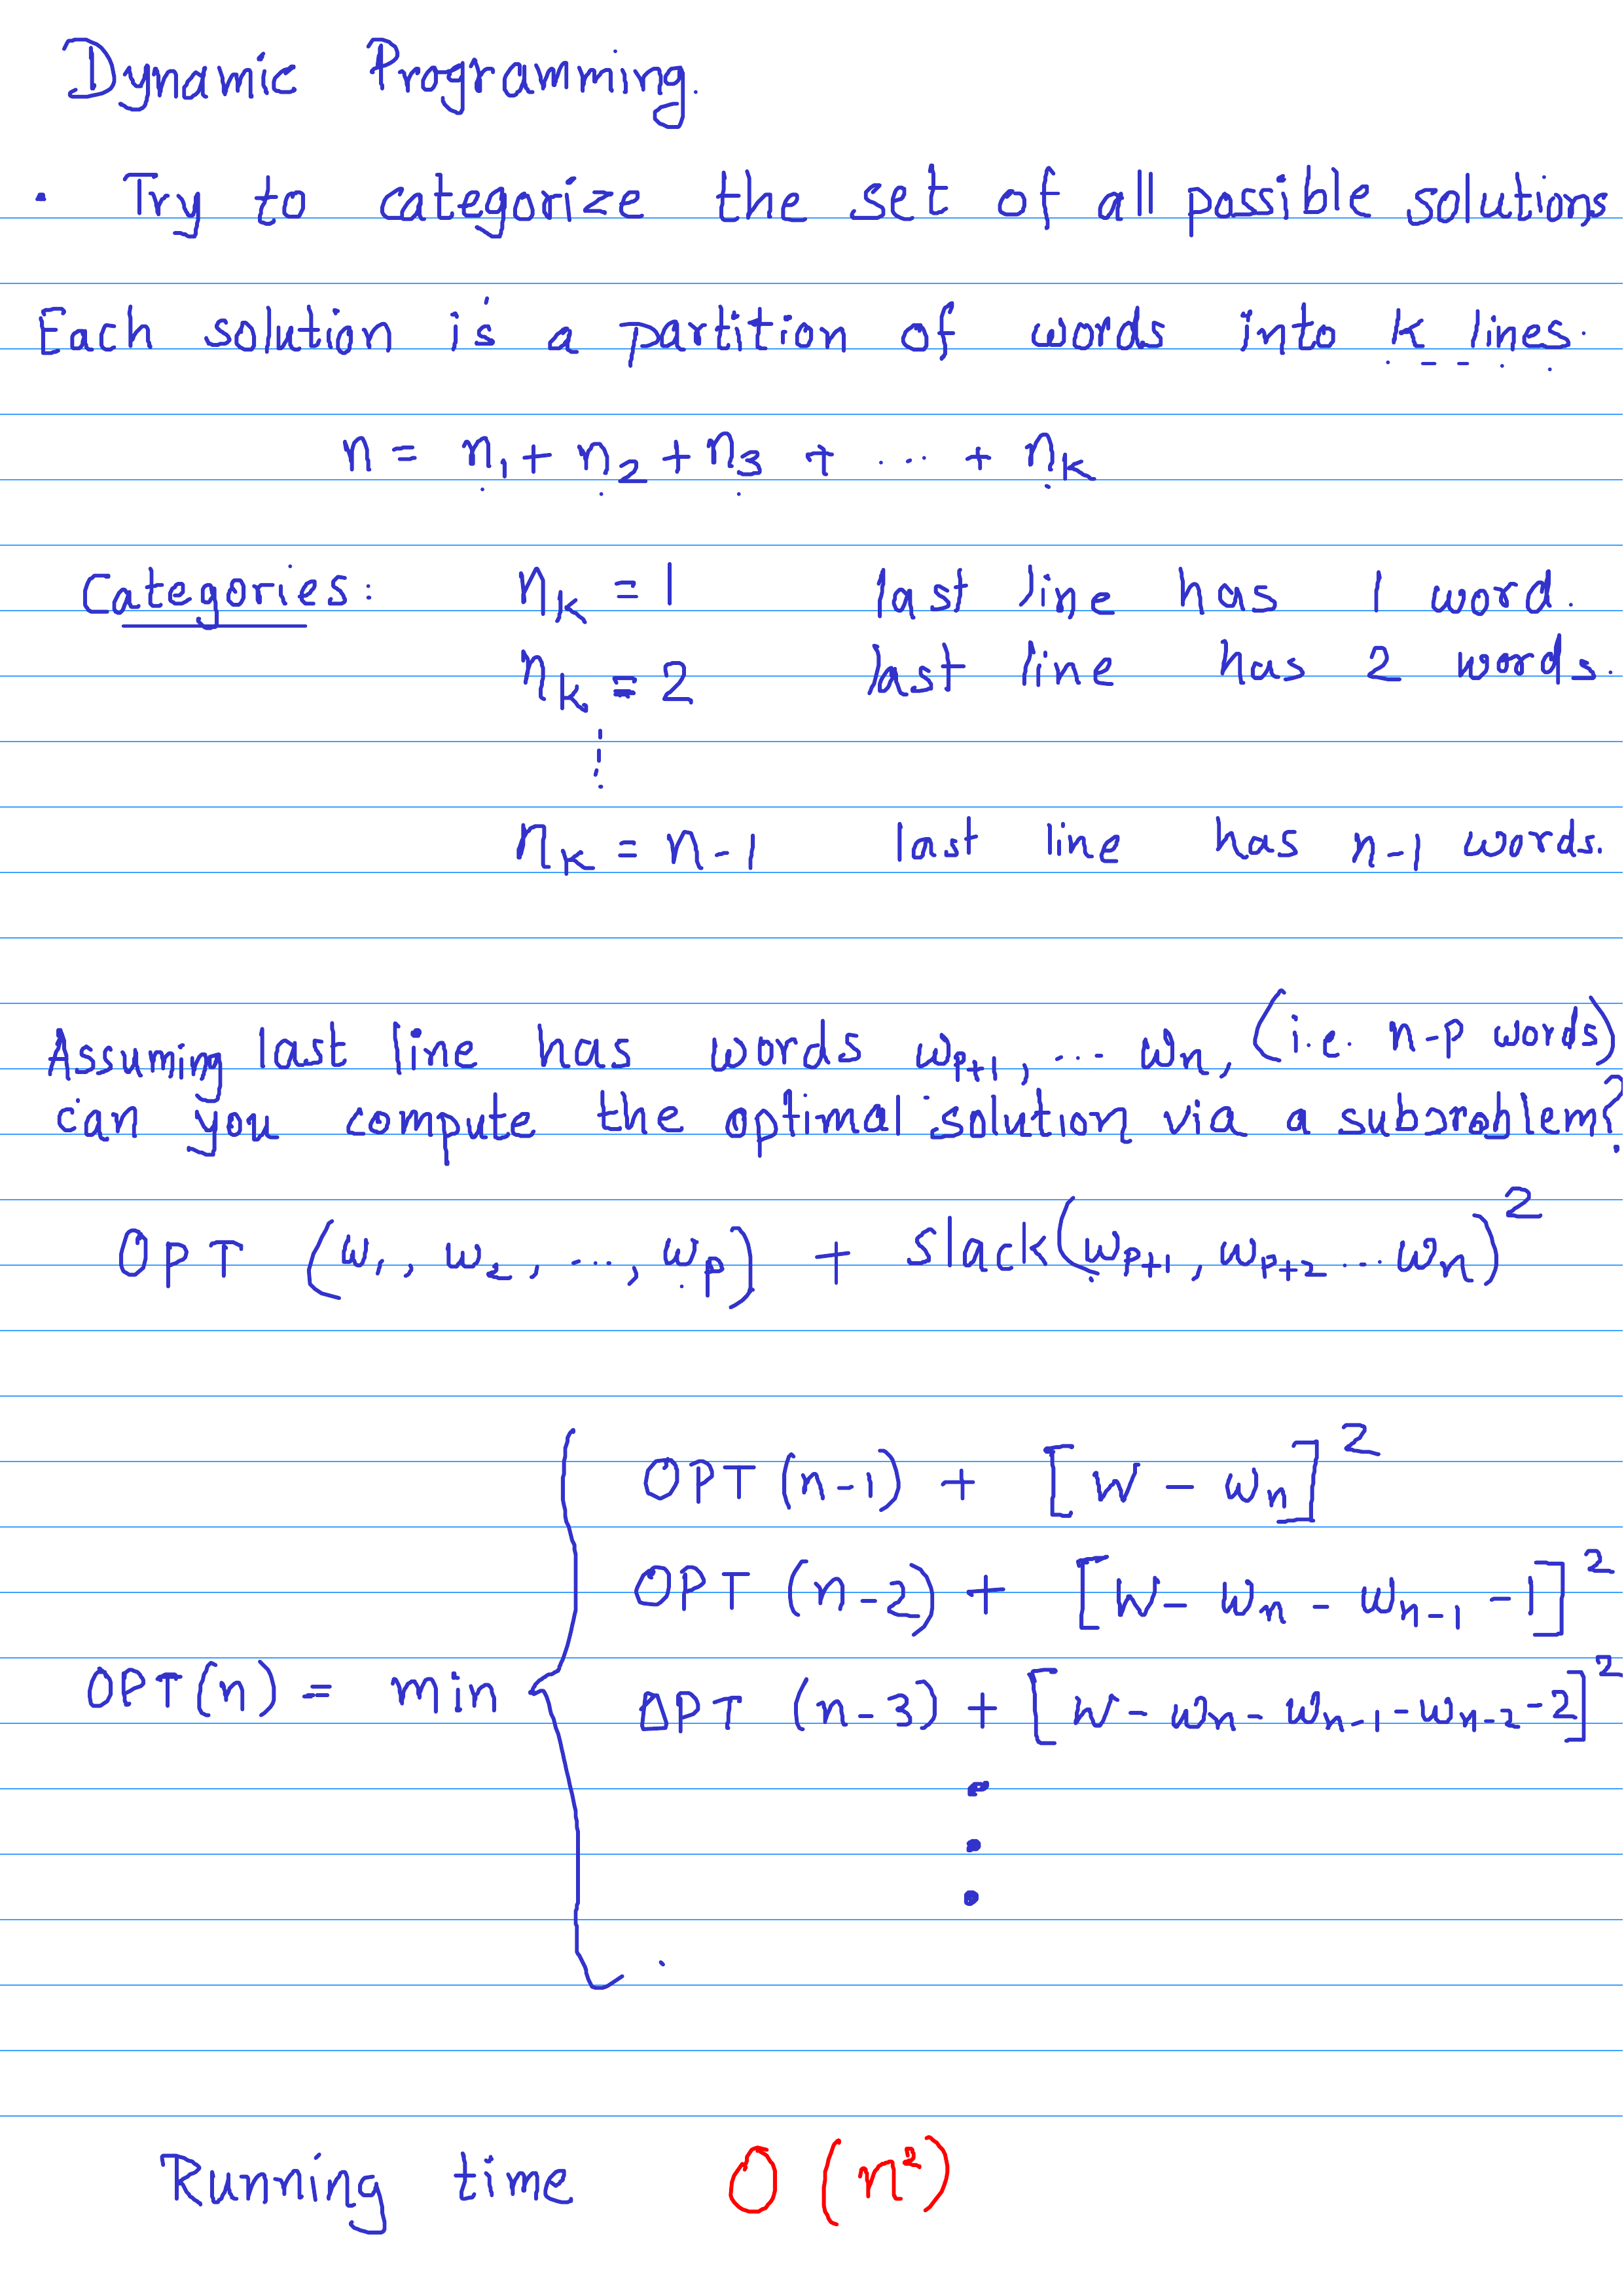 Dynamic Programming.
· Try to categorize the set of all possible solutions
Each solution is a partition of words into k lines.
n = n₁ + n₂ + n₃ + ... + nₖ
Categories: nₖ = 1 last line has 1 word.
nₖ = 2 last line has 2 words.
⋮
nₖ = n-1 last line has n-1 words.
Assuming last line has words wₚ₊₁, ... wₙ, (i.e. n-p words)
can you compute the optimal solution via a subproblem?
OPT (w₁, w₂, ..., wₚ) + slack(wₚ₊₁, wₚ₊₂ ... wₙ)²
OPT(n-1) + [W - wₙ]²
OPT (n-2) + [W - wₙ - wₙ₋₁ - 1]²
OPT(n) = min {
OPT (n-3) + [W - wₙ - wₙ₋₁ - wₙ₋₂ - 2]²
⋮
Running time O(n²)